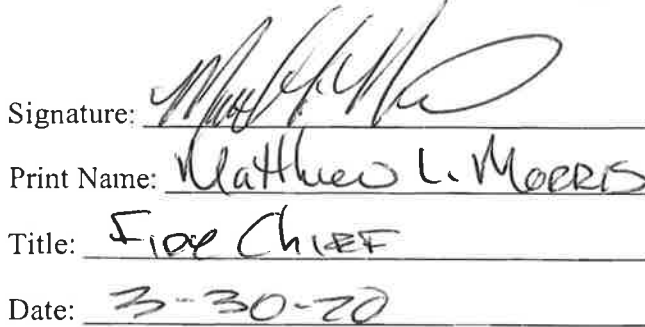 Signature:
Print Name: Matthew L. Morris
Title: Fire Chief
Date: 3-30-20